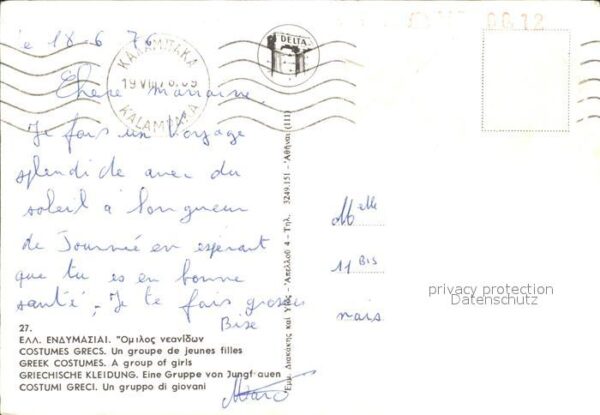 le 18 6 76
ΚΑΛΑΜΠΑΚΑ
19 VIII 76.09
KALAMPAKA
DELTA
00.12
Chere marraine.
Je fais un voyage
splendide avec du
soleil à longueur
de Journée en esperant
que tu es en bonne
santé. Je te fais grosses
Bise
Melle
11 BIS
rais
privacy protection
Datenschutz
Εμμ. Διακάκης και Υιός - Άπελλού 4 - Τηλ. 3249.151 - Άθήναι (111)
27.
ΕΛΛ. ΕΝΔΥΜΑΣΙΑΙ. Ὅμιλος νεανίδων
COSTUMES GRECS. Un groupe de jeunes filles
GREEK COSTUMES. A group of girls
GRIECHISCHE KLEIDUNG. Eine Gruppe von Jungfrauen
COSTUMI GRECI. Un gruppo di giovani